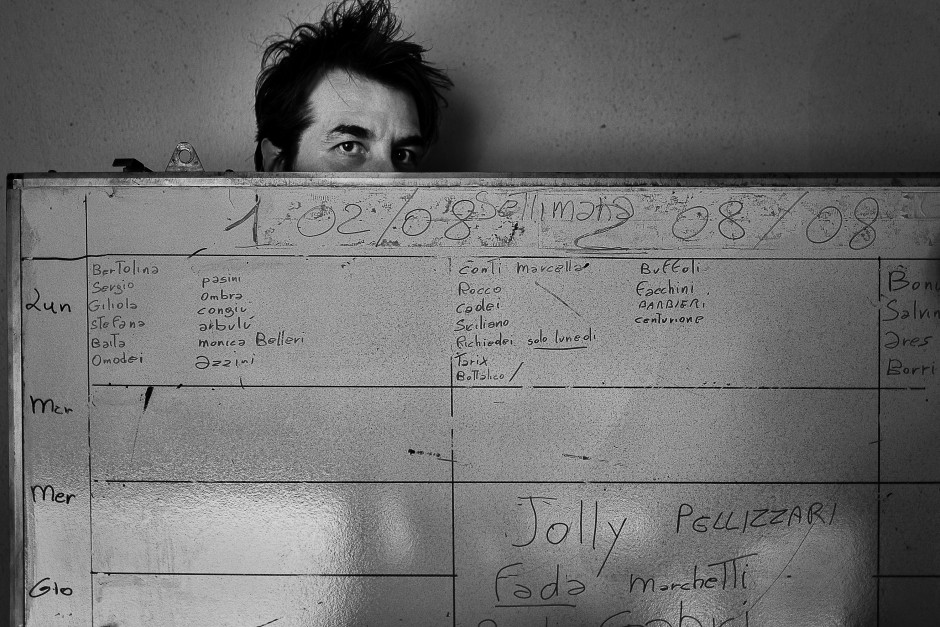 1 02/08 Settimana 2 08/08
Lun
Bertolina
Sergio
Giliola
stefana
Baita
Omodei
pasini
ombra
congiu
arbulú
monica Belleri
azzini
Conti marcella
Rocco
Cadei
Siciliano
Richiedei solo lunedi
Tarix
Bottalico
Buffoli
Facchini
BARBIERI
centurione
Salvin
Ares
Borri
Mar
Mer
Jolly PELLIZZARI
Gio
Fada Marchetti